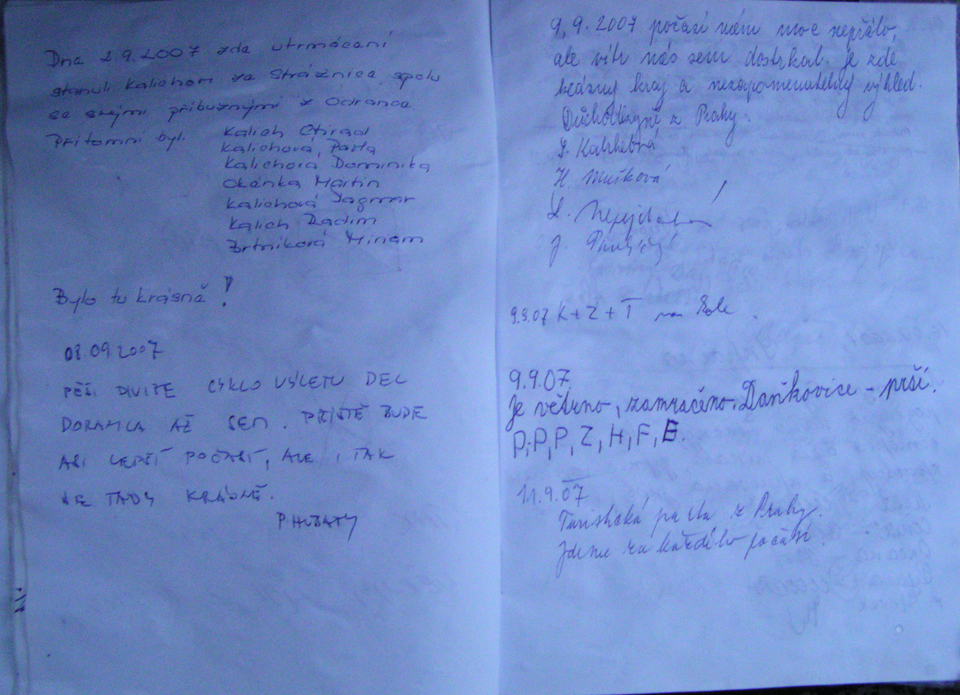 Dna 2.9.2007 zde utrmácaní
stanuli Kalichovi ze Strážnice spolu
se svými příbuznými z Odrance
Přítomni byli
Kalich Ctirad
Kalichová Pavla
Kalichová Dominika
Okánka Martin
Kalichová Dagmar
Kalich Radim
Brtníková Miriam
Bylo tu krásně!
08.09.2007
PĚŠÍ DIVIZE CYKLO VÝLETU DEL
DORAZILA AŽ SEM. PŘÍŠTĚ BUDE
ASI LEPŠÍ POČASÍ, ALE I TAK
JE TADY KRÁSNĚ.
P HUBATY
9.9.2007 počasí nám moc nepřálo,
ale vítr nás sem dostrkal. Je zde
krásný kraj a nezapomenutelný výhled.
z Prahy.
H. Mušková
9.9.07 K+Z+T
9.9.07.
Je větrno, zamračéno. Daňkovice - prší.
P, P, P, Z, H, F, E.
11.9.07
Turistická parta z Prahy.
Jdeme za každého počasí.